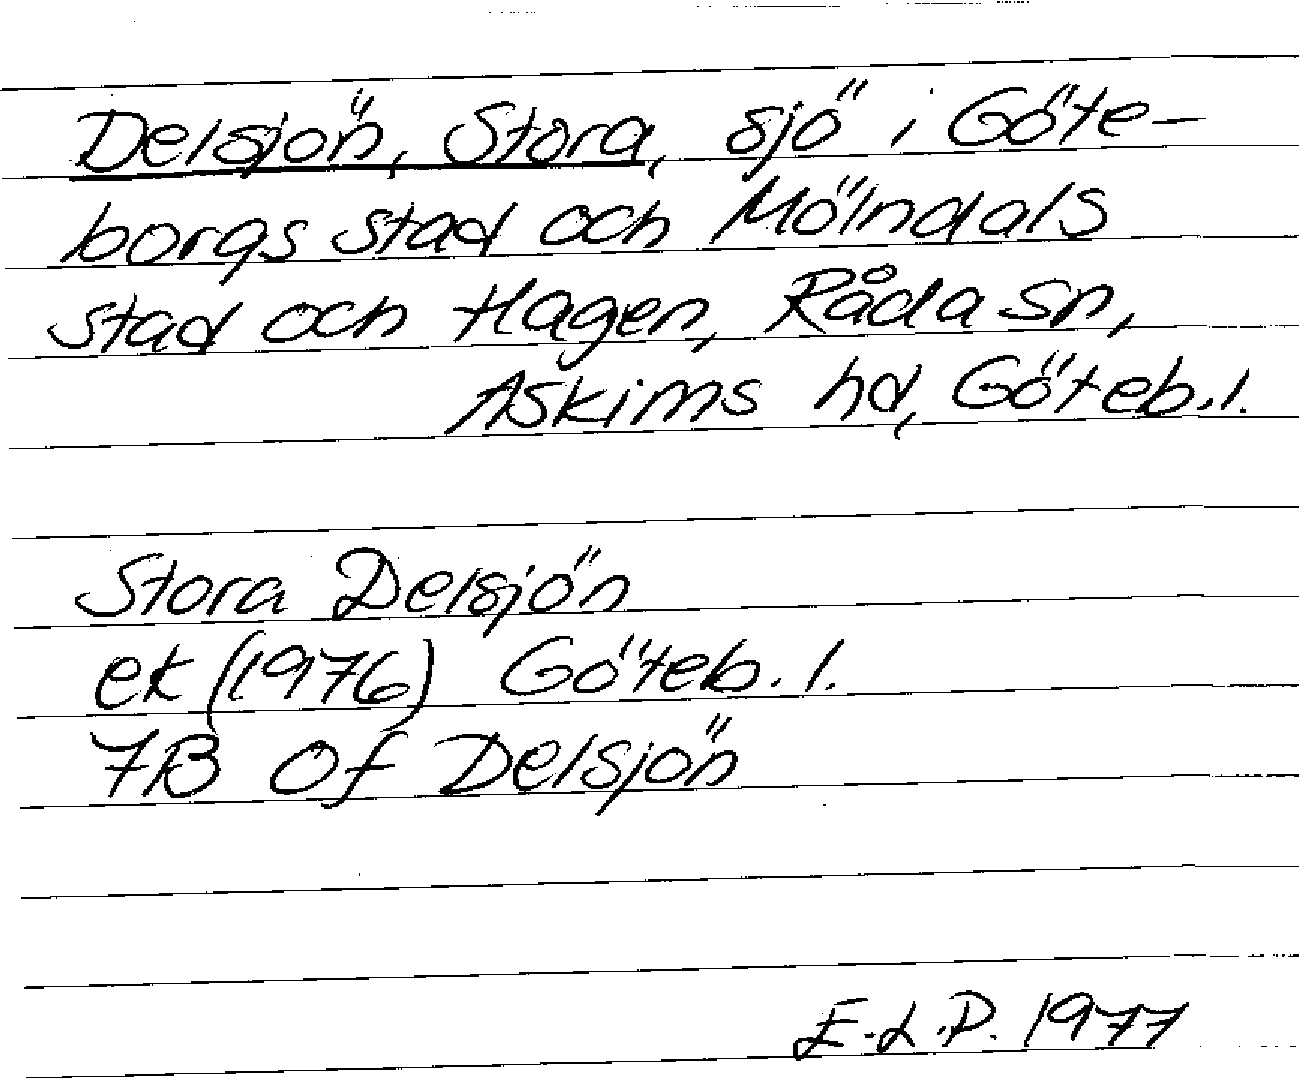 Delsjön, Stora, sjö i Göte-
borgs stad och Mölndals
stad och Hagen, Råda sn,
Askims hd, Göteb.l.
Stora Delsjön
ek (1976) Göteb. l.
7B 0f Delsjön
E.L.P. 1977